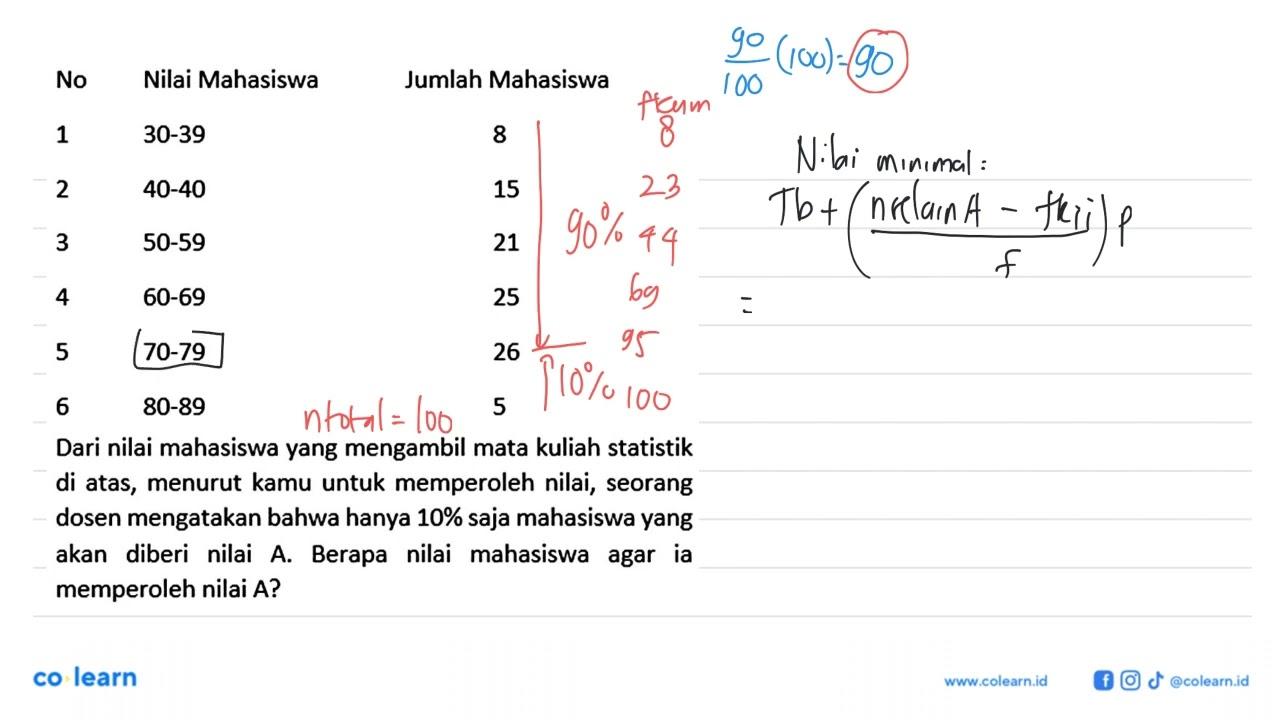 90/100 (100) = 90
No Nilai Mahasiswa Jumlah Mahasiswa fkum
1 30-39 8 8
2 40-40 15 23
3 50-59 21 90% 44
4 60-69 25 69
5 70-79 26 95
6 80-89 5 10% 100
n total = 100
Nilai minimal:
Tb + (nselain A - fkii / f) p
=
Dari nilai mahasiswa yang mengambil mata kuliah statistik
di atas, menurut kamu untuk memperoleh nilai, seorang
dosen mengatakan bahwa hanya 10% saja mahasiswa yang
akan diberi nilai A. Berapa nilai mahasiswa agar ia
memperoleh nilai A?
co learn
www.colearn.id
@colearn.id